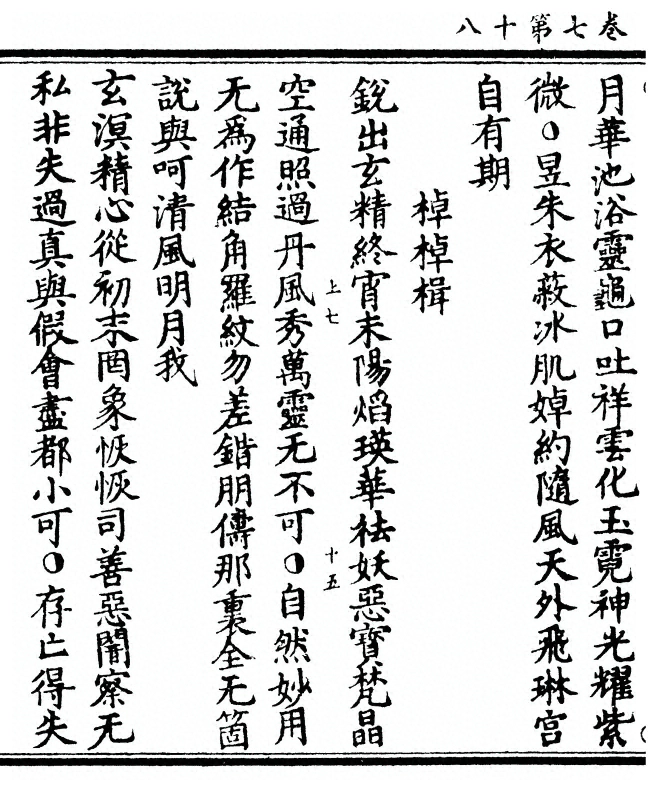 卷七第十八
月華池浴靈龜口吐祥雲化玉霓神光耀紫
微○昱朱衣蔽冰肌婥約隨風天外飛琳宮
自有期
棹棹楫
銳出玄精終宵未陽焰瑛華祛妖惡寶梵晶
空通照過丹風秀萬靈无不可○自然妙用
上七
十五
无為作結角羅紋勿差錯朋儔那裏全无箇
說與呵清風明月我
玄溟精心從初末罔象恢恢司善惡闇察无
私非失過真與假會盡都小可○存亡得失